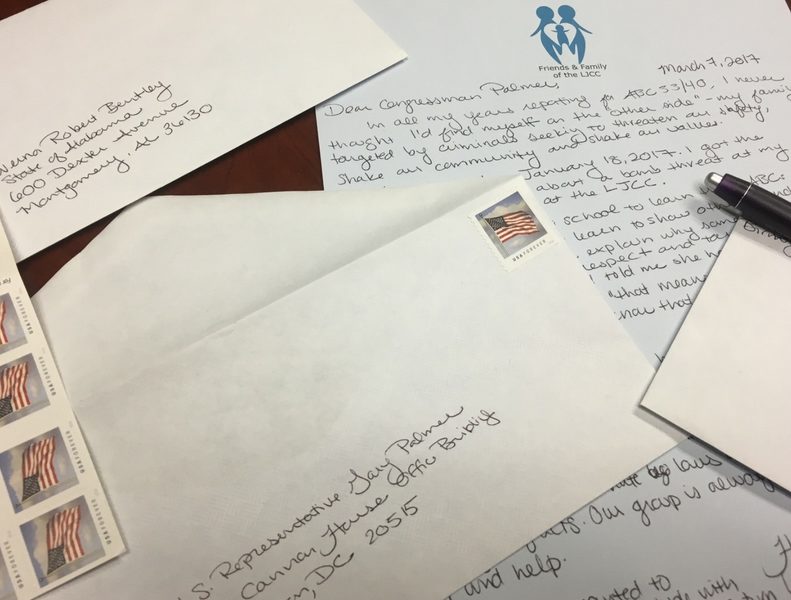 Robert Bentley
State of Alabama
600 Dexter Avenue
Montgomery, AL 36130
Friends & Family
of the LJCC
March 7, 2017
Dear Congressman Palmer,
In all my years reporting for ABC 33/40, I never
thought I'd find myself on the "other side" - my family
targeted by criminals seeking to threaten our safety,
shake our community and shake our values.
January 18, 2017. I got the
about a bomb threat at my
at the LJCC.
school to learn ABCs
learn to show
explain why some
respect and
I told me she
"that means
that
USA FOREVER
USA FOREVER
USA FOREVER
USA FOREVER
USA FOREVER
S. Representative Gary Palmer
Cannon House Office Building
DC 20515
laws
Our group is always
and help.
with